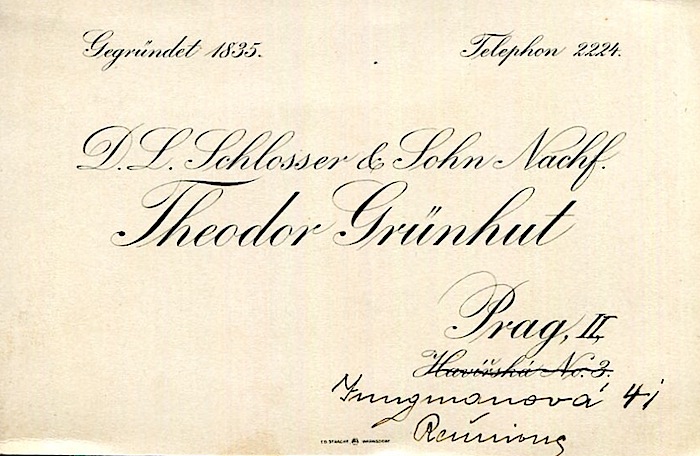 Gegründet 1835.
Telephon 2224.
D. L. Schlosser & Sohn Nachf.
Theodor Grünhut
Prag, II,
Havířská No. 3.
Jungmanová 41
Reunions
ED. STRACHE WARNSDORF